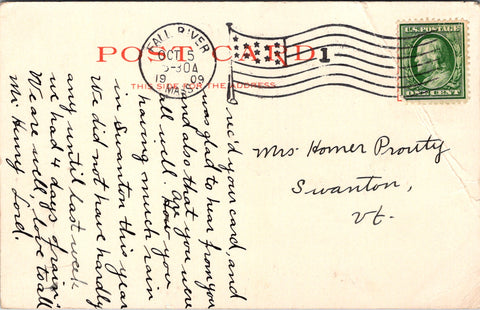 POST CARD
THIS SIDE FOR THE ADDRESS
FALL RIVER
OCT 5
5-30A
19 09
MASS.
1
U.S. POSTAGE
ONE CENT
Mrs. Homer Prouty
Swanton,
Vt.
I rec'd your card, and
was glad to hear from you
and also that you were
all well. How you
having much rain
in Swanton this year
We did not have hardly
any until last week
we had 4 days of rain.
We are well love to all
Mr Henry Lord.